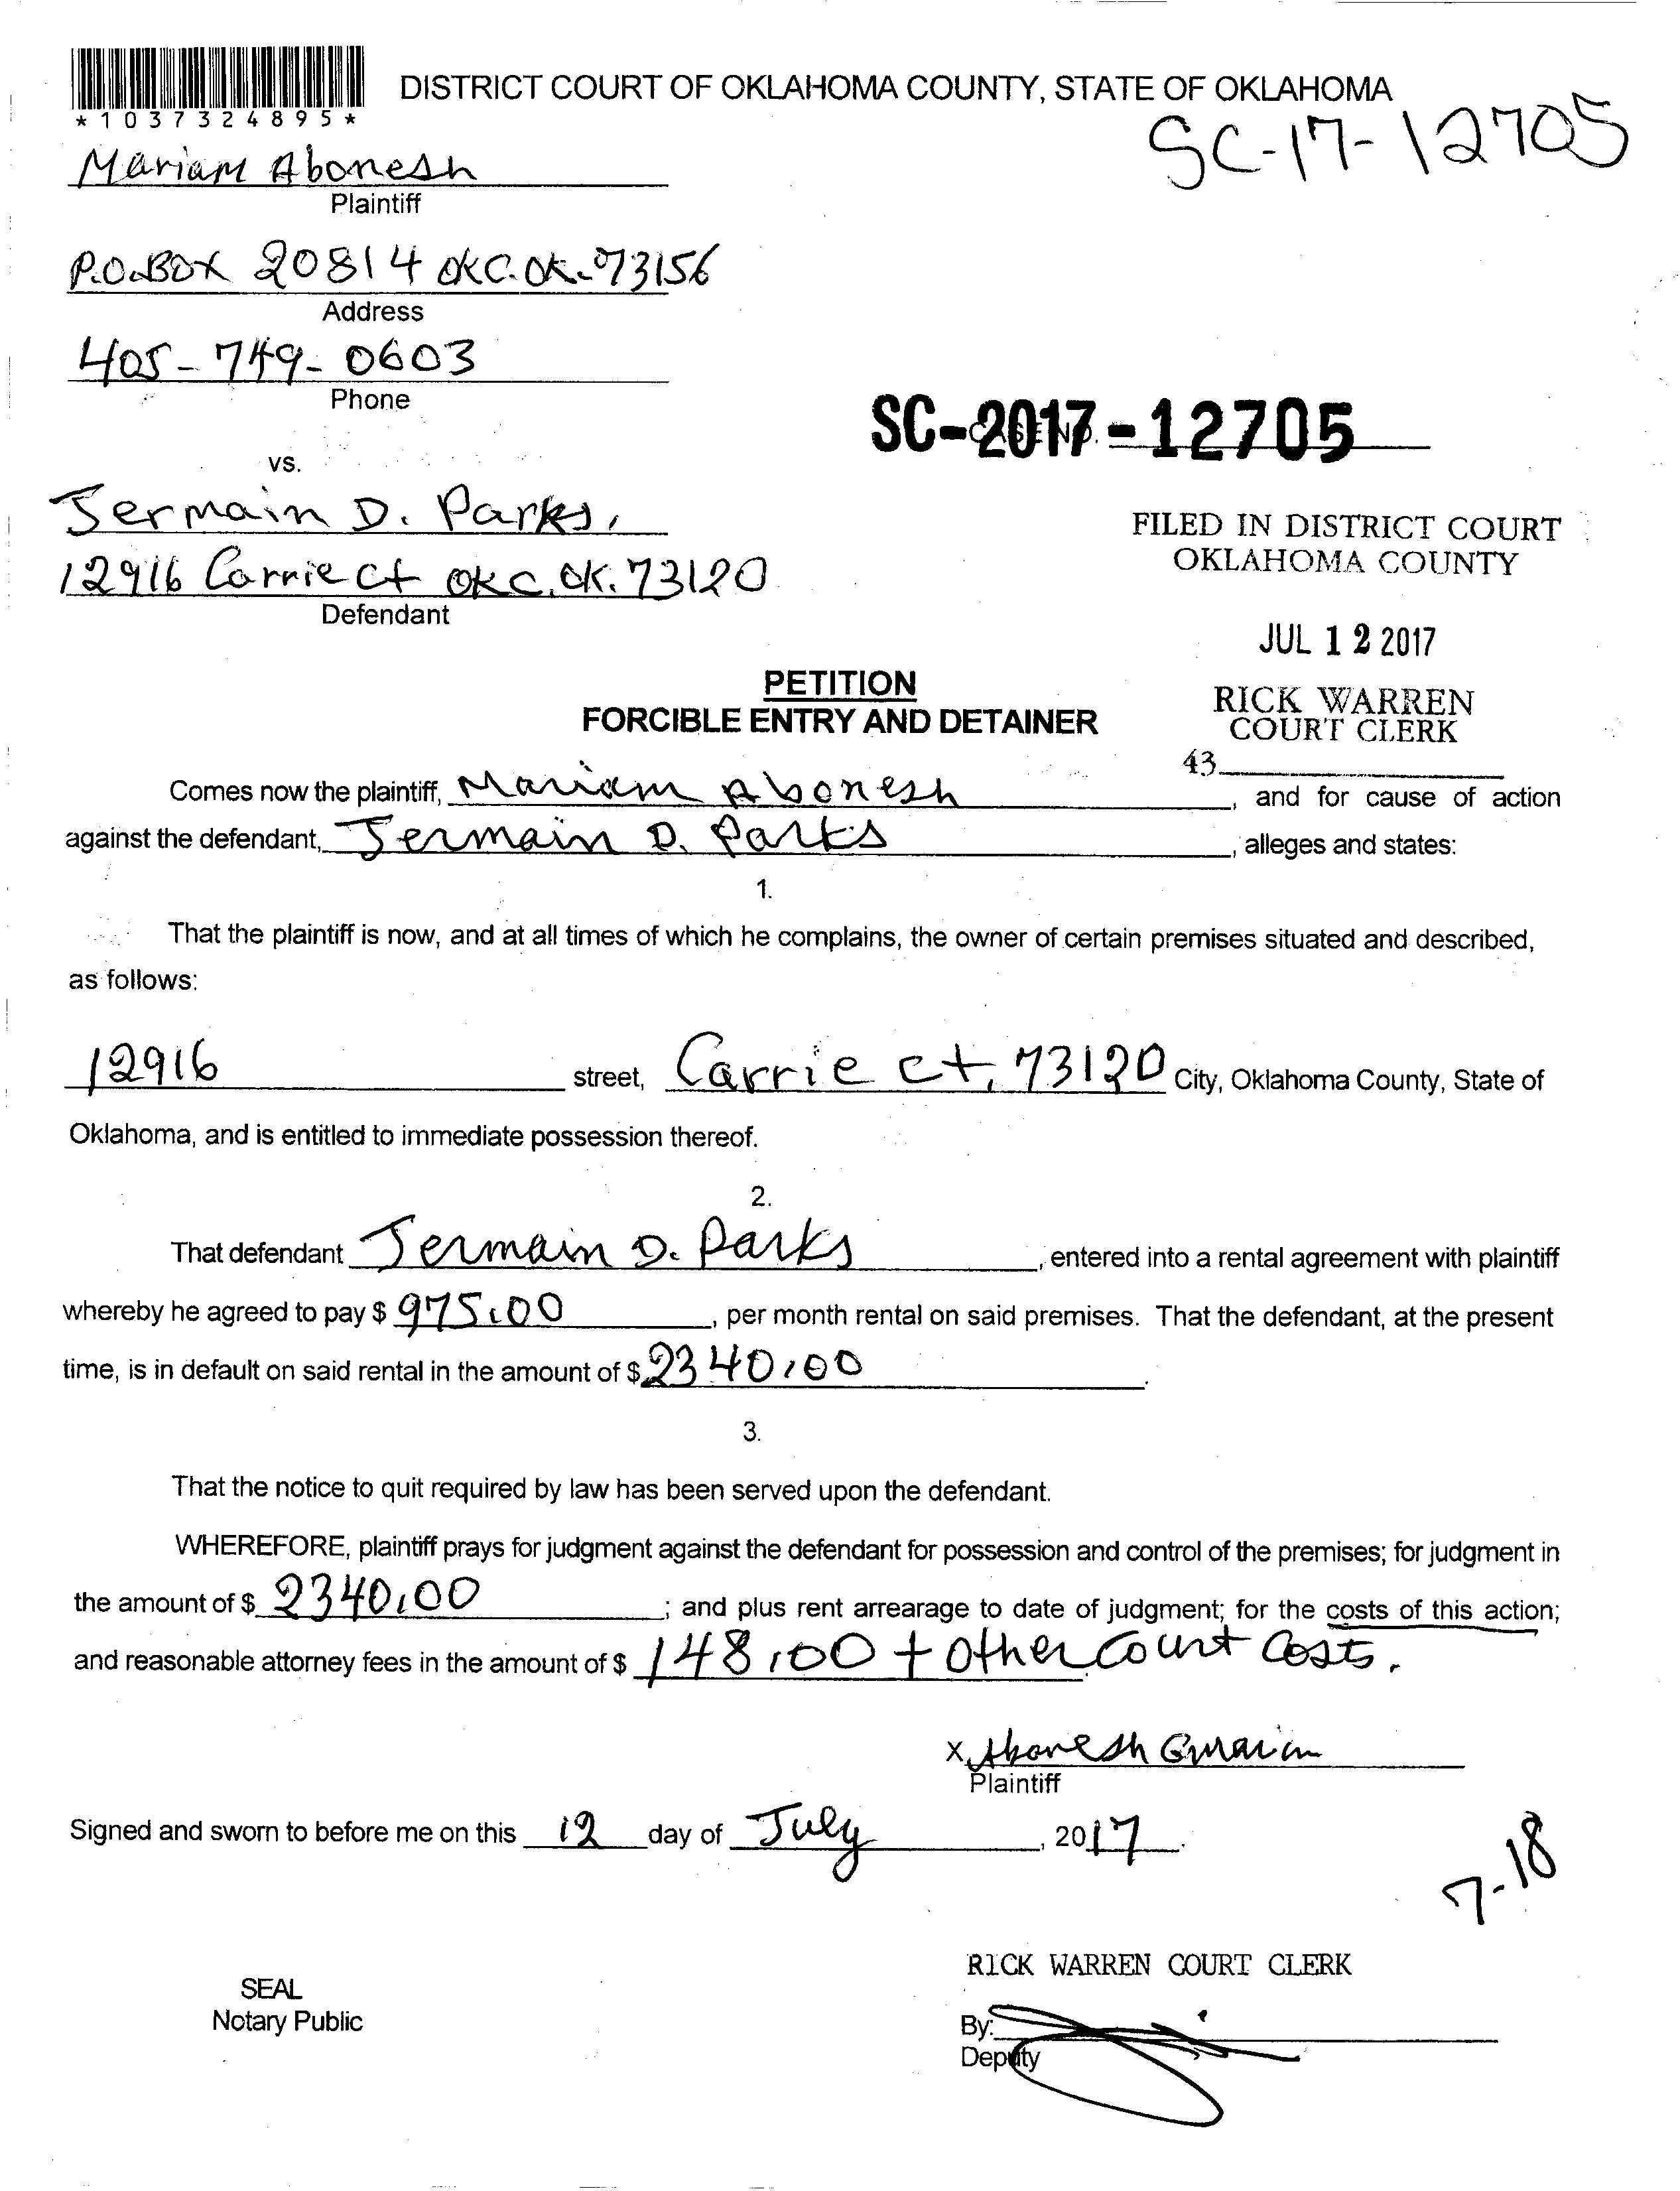 DISTRICT COURT OF OKLAHOMA COUNTY, STATE OF OKLAHOMA
*1037324895*
SC-17-12705
Mariam Abonesh
Plaintiff
P.O.BOX 20814 OKC.OK.73156
Address
405-749-0603
Phone
SC-2017-12705
CASE NO.
vs.
Jermain D. Parks,
12916 Carrie ct OKC.OK.73120
Defendant
FILED IN DISTRICT COURT
OKLAHOMA COUNTY
JUL 12 2017
RICK WARREN
COURT CLERK
43
PETITION
FORCIBLE ENTRY AND DETAINER
Comes now the plaintiff, Mariam Abonesh, and for cause of action
against the defendant, Jermain D. Parks, alleges and states:
1.
That the plaintiff is now, and at all times of which he complains, the owner of certain premises situated and described,
as follows:
12916 street, Carrie ct, 73120 City, Oklahoma County, State of
Oklahoma, and is entitled to immediate possession thereof.
2.
That defendant Jermain D. Parks, entered into a rental agreement with plaintiff
whereby he agreed to pay $ 975.00, per month rental on said premises. That the defendant, at the present
time, is in default on said rental in the amount of $ 2340.00.
3.
That the notice to quit required by law has been served upon the defendant.
WHEREFORE, plaintiff prays for judgment against the defendant for possession and control of the premises; for judgment in
the amount of $ 2340.00; and plus rent arrearage to date of judgment; for the costs of this action;
and reasonable attorney fees in the amount of $ 148.00 + Other Court Costs.
X Abonesh
Plaintiff
Signed and sworn to before me on this 12 day of July, 2017.
7-18
RICK WARREN COURT CLERK
SEAL
Notary Public
By:
Deputy